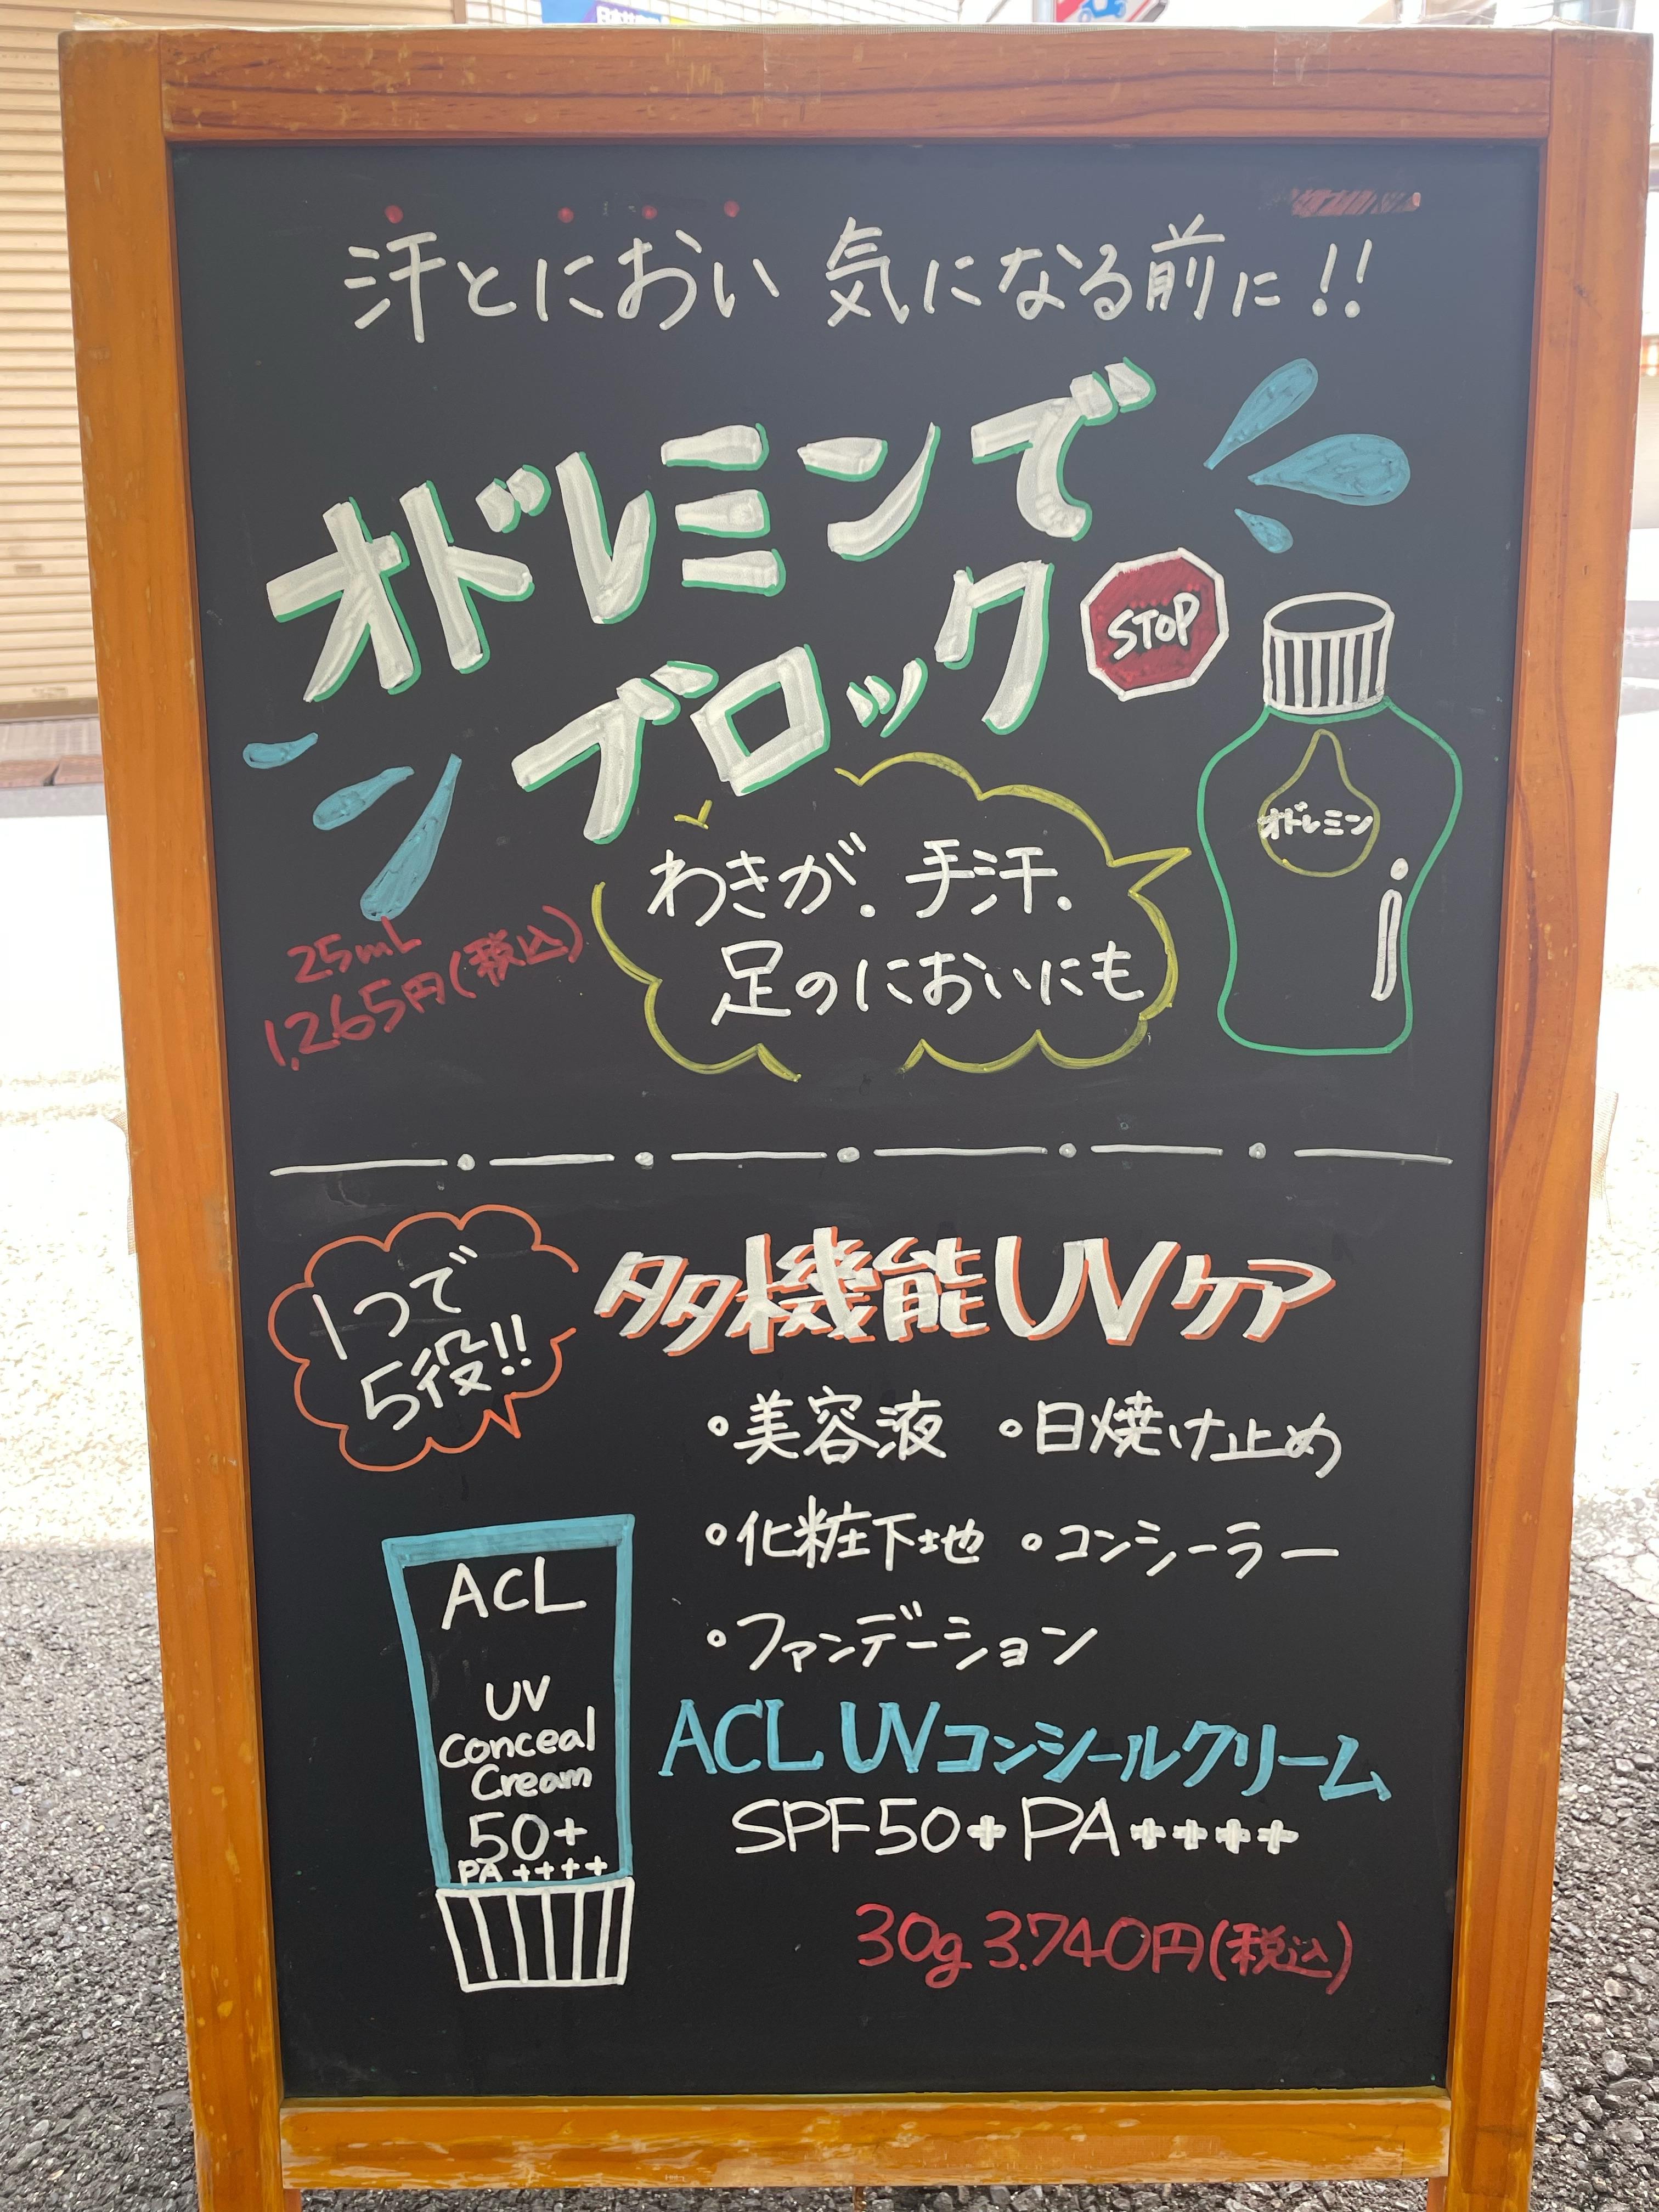 汗とにおい 気になる前に!!
オドレミンで
ブロック
STOP
オドレミン
わきが.手汗.
足のにおいにも
25mL
1,265円(税込)
1つで
5役!!
多機能UVケア
•美容液 •日焼け止め
•化粧下地 •コンシーラー
•ファンデーション
ACL
UV
Conceal
Cream
50+
PA++++
ACL UVコンシールクリーム
SPF50+PA++++
30g 3.740円(税込)